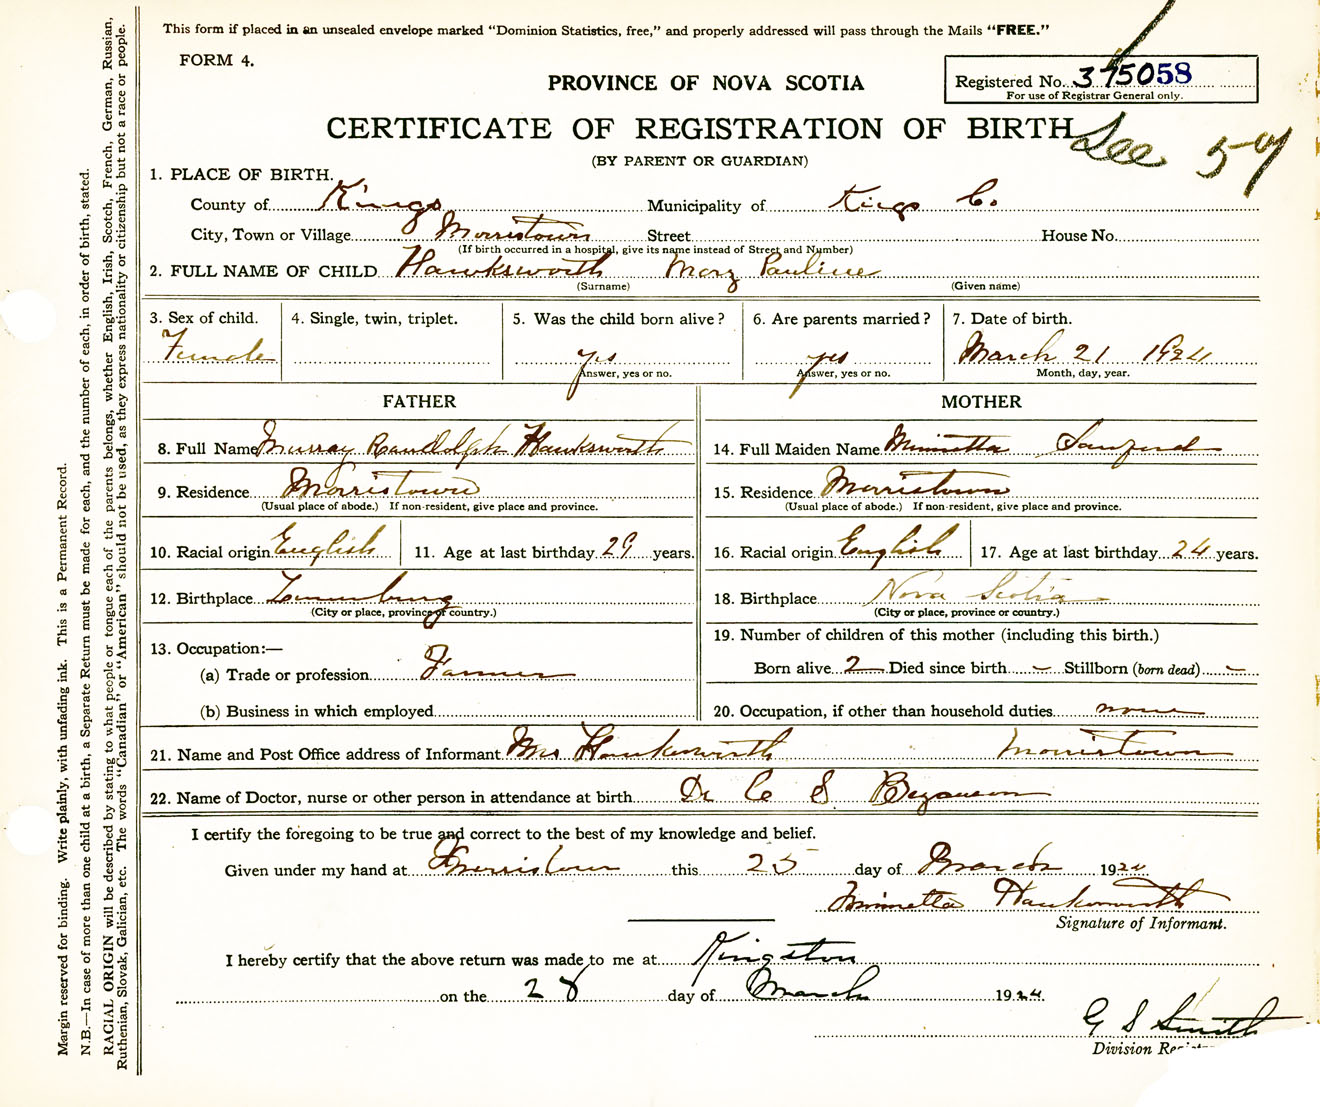 This form if placed in an unsealed envelope marked "Dominion Statistics, free," and properly addressed will pass through the Mails "FREE."
FORM 4.
PROVINCE OF NOVA SCOTIA
Registered No. 375058
For use of Registrar General only.
CERTIFICATE OF REGISTRATION OF BIRTH
See
(BY PARENT OR GUARDIAN)
1. PLACE OF BIRTH.
County of Kings Municipality of Kings Co.
City, Town or Village Morristown Street House No.
(If birth occurred in a hospital, give its name instead of Street and Number)
2. FULL NAME OF CHILD Hawksworth Mary Pauline
(Surname) (Given name)
3. Sex of child. 4. Single, twin, triplet. 5. Was the child born alive? 6. Are parents married? 7. Date of birth.
Female yes yes March 21 1924
Answer, yes or no. Answer, yes or no. Month, day, year.
FATHER MOTHER
8. Full Name Murray Randolph Hawksworth 14. Full Maiden Name Minnetta Sanford
9. Residence Morristown 15. Residence Morristown
(Usual place of abode.) If non-resident, give place and province. (Usual place of abode.) If non-resident, give place and province.
10. Racial origin English 11. Age at last birthday 29 years. 16. Racial origin English 17. Age at last birthday 24 years.
12. Birthplace Lunenburg 18. Birthplace Nova Scotia
(City or place, province or country.) (City or place, province or country.)
13. Occupation:— 19. Number of children of this mother (including this birth.)
(a) Trade or profession Farmer Born alive 2 Died since birth – Stillborn (born dead) –
(b) Business in which employed 20. Occupation, if other than household duties none
21. Name and Post Office address of Informant Mrs Hawksworth Morristown
22. Name of Doctor, nurse or other person in attendance at birth Dr C S Bezanson
I certify the foregoing to be true and correct to the best of my knowledge and belief.
Given under my hand at Morristown this 25 day of March 1924
Minnetta Hawksworth
Signature of Informant.
I hereby certify that the above return was made to me at Kingston
on the 28 day of March 1924.
G S Smith
Division
Margin reserved for binding. Write plainly, with unfading ink. This is a Permanent Record.
N.B.—In case of more than one child at a birth, a Separate Return must be made for each, and the number of each, in order of birth, stated.
RACIAL ORIGIN will be described by stating to what people or tongue each of the parents belongs, whether English, Irish, Scotch, French, German, Russian,
Ruthenian, Slovak, Galician, etc. The words "Canadian" or "American" should not be used, as they express nationality or citizenship but not a race or people.